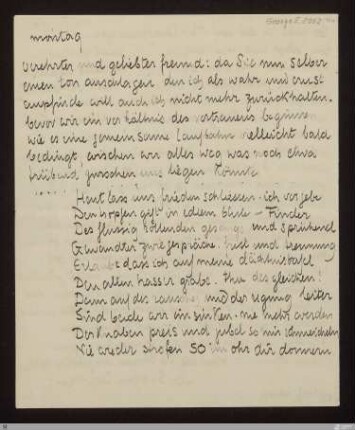 George III 2502
montag
verehrter und geliebter freund: da Sie nun selber
einen ton anschlagen den ich als wahr und ernst
empfinde will auch ich nicht mehr zurückhalten.
bevor wir ein verhältnis des vertrauens beginnen
wie es eine gemeinsame laufbahn vielleicht bald
bedingt, wischen wir alles weg was noch etwa
trübend zwischen uns liegen könnte
Heut lass uns frieden schliessen. ich vergebe
Den tropfen gift in edlem blute – Finder
Des flüssig rollenden gesangs und sprühend
Gewandter zwiegespräche: frist und trennung
Erlaubt dass ich auf meine dächtnistafel
Den alten hasser grabe. thu desgleichen!
Denn auf des rausches und der regung leiter
Sind beide wir im sinken. nie mehr werden
Der knaben preis und jubel so mir schmeicheln
Nie wieder strofen SO im ohr dir donnern